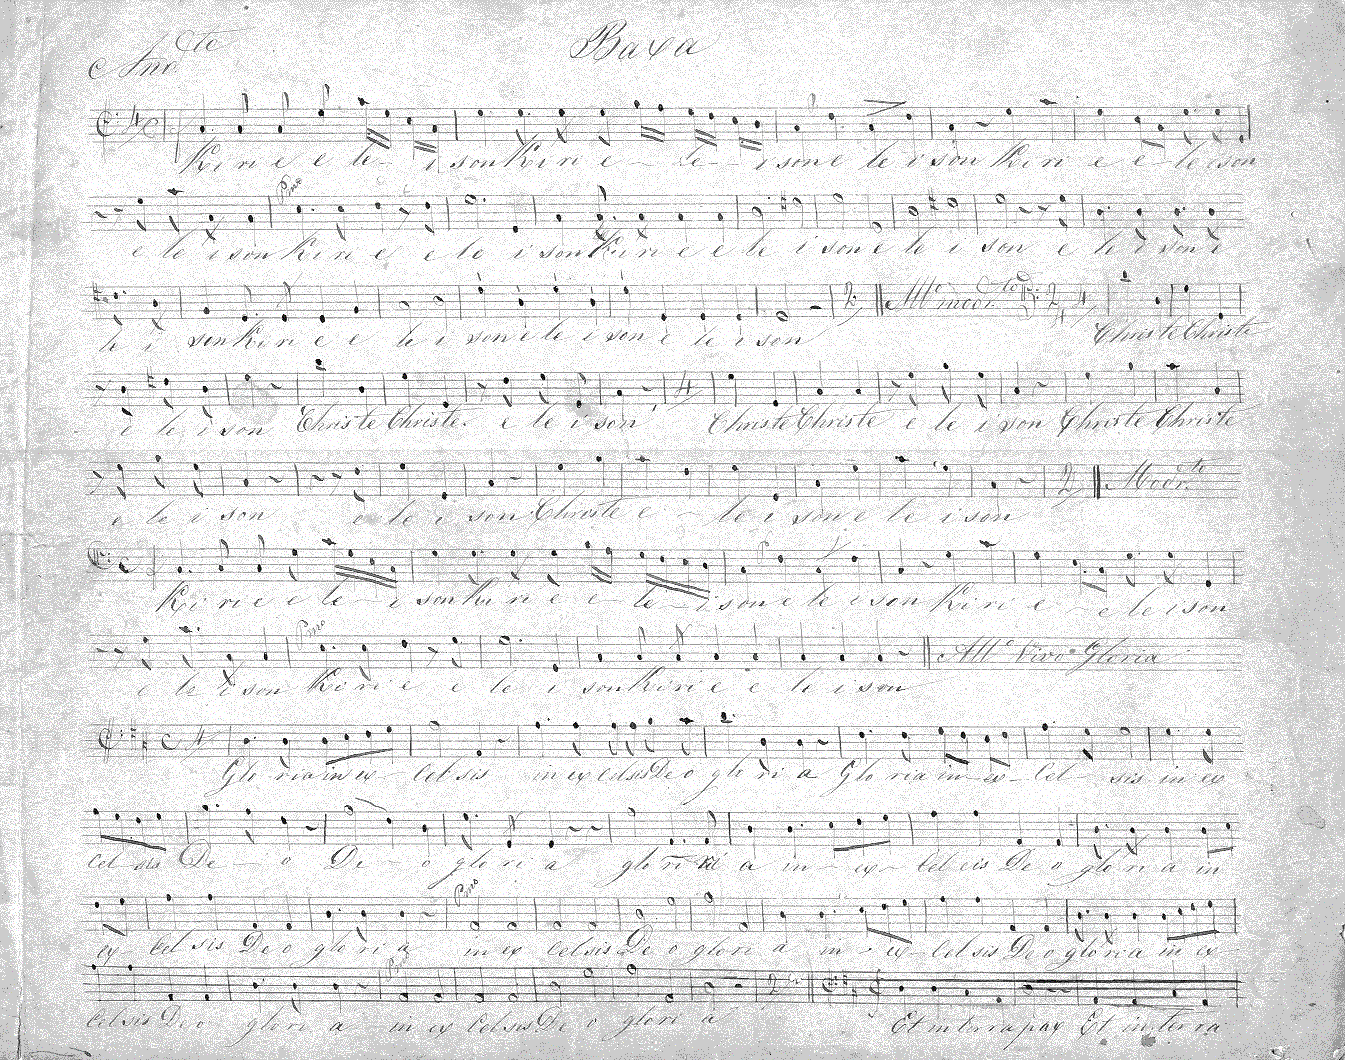 Baxa
And.te
Ki ri e e le - i son Ki ri e - le - i son e le i son Ki ri e e - le i son
Pmo
e le i son Ki ri e e le i son Ki ri e e le i son e le i son e le i son e
All.o mod.to
le i son Ki ri e e le i son e le i son e le i son Chris te Chris te
e le i son Chris te Chris te e le i son Chris te Chris te e le i son Chris te Chris te
Mod.to
e le i son e le i son Chris te e - le i son e le i son
Ki ri e e le - i son Ki ri e e - le - i son e le i son Ki ri e - e le i son
Pmo
e le i son Ki ri e e le i son Ki ri e e le i son
All.o Vivo Gloria
Glo ria in ex - cel sis in ex cel sis De o glo ri a Glo ria in - ex - cel - sis in ex
cel sis De - o De - o glo ri a glo ri a in - ex - cel sis De o glo ri a in
Pmo
ex - cel sis De o glo ri a in ex cel sis De o glo ri a in - ex - cel sis De o glo ri a in ex
Pmo
cel sis De o glo ri a in ex cel sis De o glo ri a Et in terra pax Et in ter ra